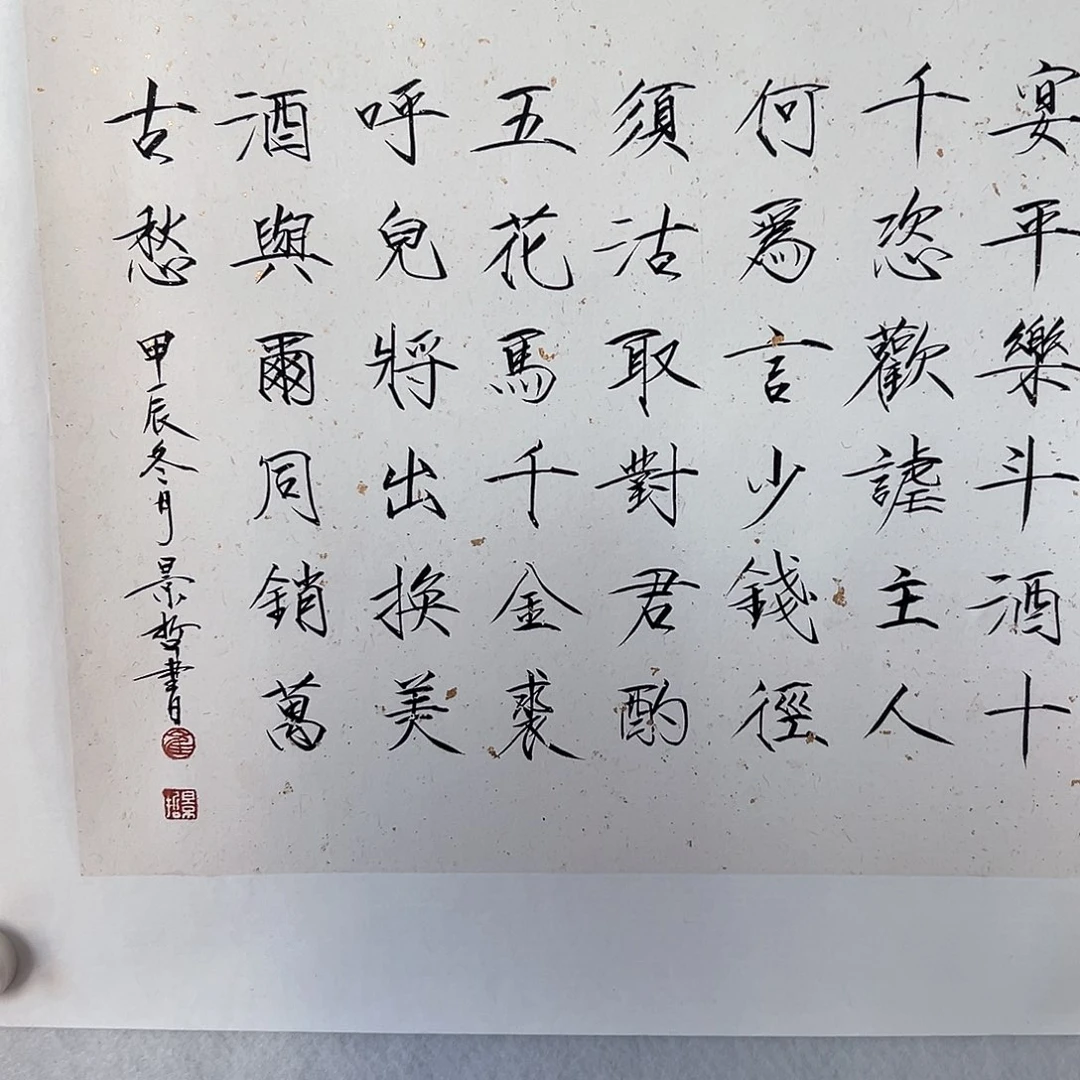 宴平樂斗酒十
千恣歡謔主人
何爲言少錢徑
須沽取對君酌
五花馬千金裘
呼兒將出換美
酒與爾同銷萬
古愁
甲辰冬月景哲書
景哲